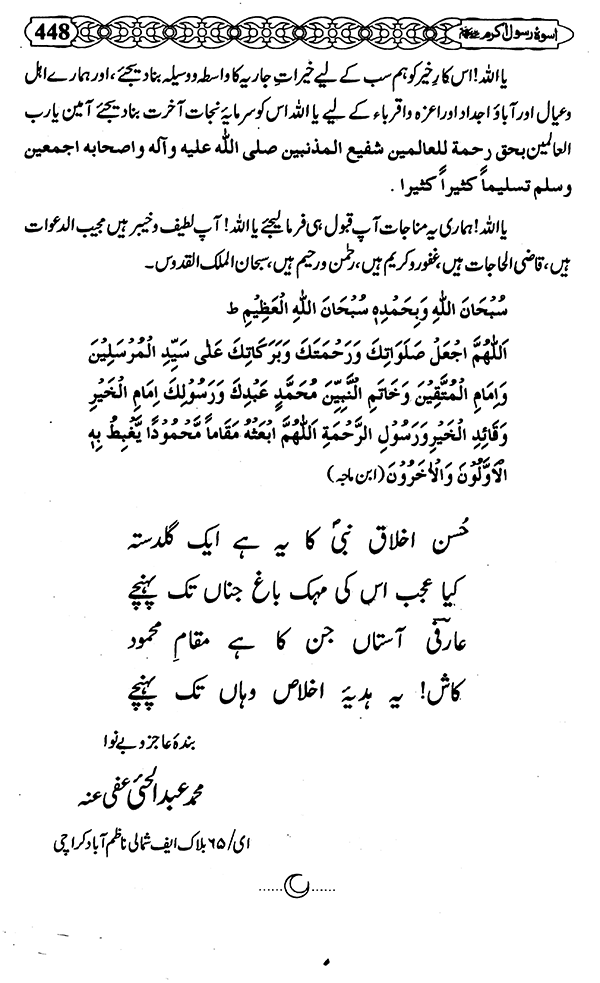 448
اسوۂ رسول اکرم ﷺ
یا اللہ! اس کارِ خیر کو ہم سب کے لیے خیراتِ جاریہ کا واسطہ و وسیلہ بنا دیجئے، اور ہمارے اہل
و عیال اور آباؤ اجداد اور اعزہ و اقرباء کے لیے یا اللہ اس کو سرمایۂ نجات آخرت بنا دیجئے آمین یارب
العالمین بحق رحمة للعالمین شفیع المذنبین صلی اللّٰه علیه وآله واصحابه اجمعین
وسلم تسلیماً کثیراً کثیرا .
یا اللہ! ہماری یہ مناجات آپ قبول ہی فرما لیجئے یا اللہ! آپ لطیف و خبیر ہیں مجیب الدعوات
ہیں، قاضی الحاجات ہیں، غفور و کریم ہیں، رحمٰن و رحیم ہیں، سبحان الملک القدوس۔
سُبْحَانَ اللّٰهِ وَبِحَمْدِهٖ سُبْحَانَ اللّٰهِ الْعَظِیْمِ ط
اَللّٰهُمَّ اجْعَلْ صَلَوَاتِكَ وَرَحْمَتَكَ وَبَرَكَاتِكَ عَلٰی سَیِّدِ الْمُرْسَلِیْنَ
وَاِمَامِ الْمُتَّقِیْنَ وَخَاتَمِ النَّبِیِّنَ مُحَمَّدٍ عَبْدِكَ وَرَسُوْلِكَ اِمَامِ الْخَیْرِ
وَقَائِدِ الْخَیْرِ وَرَسُوْلِ الرَّحْمَةِ اَللّٰهُمَّ ابْعَثْهُ مَقَاماً مَّحْمُوْدًا یَّغْبِطُ بِهِ
الْاَوَّلُوْنَ وَالْاٰخَرُوْنَ (ابن ماجہ)
حُسن اخلاق نبیؐ کا یہ ہے ایک گلدستہ
کیا عجب اس کی مہک باغ جناں تک پہنچے
عارفؔی آستاں جن کا ہے مقامِ محمود
کاش! یہ ہدیۂ اخلاص وہاں تک پہنچے
بندۂ عاجز و بے نوا
محمد عبدالحئی عفی عنہ
ای/۶۵ بلاک ایف شمالی ناظم آباد کراچی